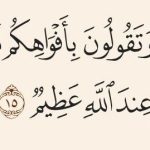 وَتَقُولُونَ بِأَفْوَاهِكُم
عِندَ ٱللَّهِ عَظِيمٌ ١٥